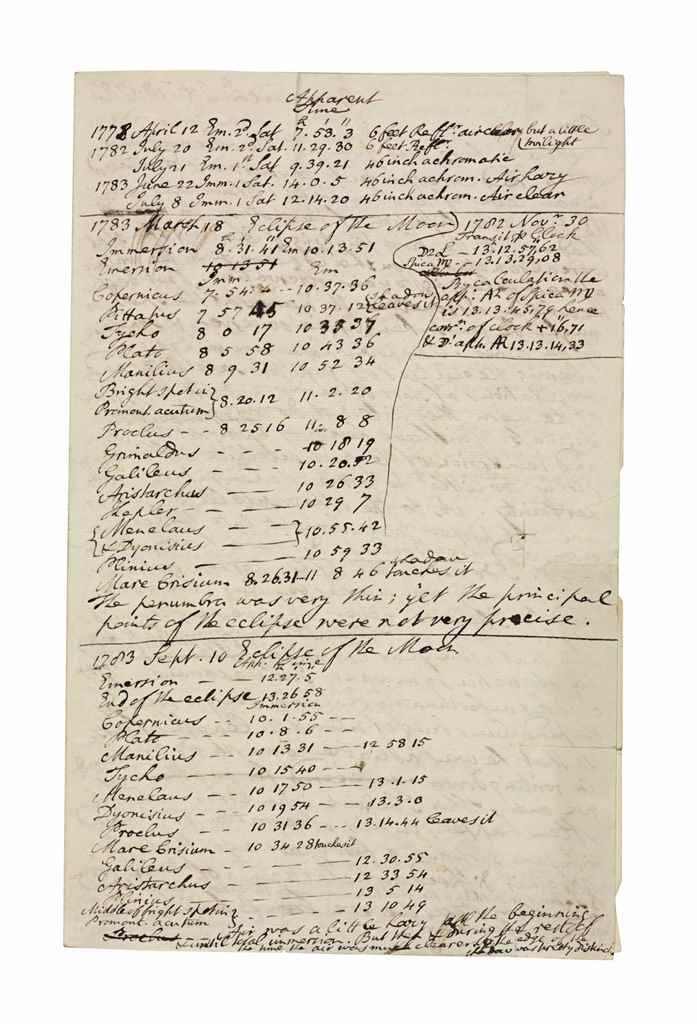 Apparent
Time
h ' "
1778 April 12 Em. 2d. Sat 7. 53. 3 6 feet Reflr. air clear but a little
twilight
1782 July 20 Em. 2d. Sat. 11. 29. 30 6 feet Reflr.
July 21 Em. 1st Sat 9. 39. 21 46 inch achromatic
1783 June 22 Imm. 1 Sat. 14. 0. 5 46 inch achrom. Air hazy
July 8 Imm. 1 Sat 12. 14. 20 46 inch achrom. Air clear
1783 March 18 Eclipse of the Moon
Immersion 8. 31. 41 Em 10. 13. 51
Emersion 10 13 51
Imm. Em
Copernicus 7. 54. 4 -- 10. 37. 36
Pittatus 7 57 45 10 37. 12 shadow
leaves it
Tycho 8 0 17 10 38 37
Plato 8 5 58 10 43 36
Manilius 8 9 31 10 52 34
Bright spot in
Promont. acutum } 8. 20. 12 11. 2. 20
Proclus -- 8 25 16 11. 8 8
Grimaldus - - - 10 18 19
Galileus - - - 10. 20. 52
Aristarchus — — 10 26 33
Kepler — — 10 29 7
{ Menelaus — — } 10. 55. 42
{ & Dyonisius — —
Plinius — — 10 59 33
Mare Crisium 8. 26. 31 — 11 8 46 shadow
touches it
The penumbra was very thin; yet the principal
points of the eclipse were not very precise.
1782 Novr. 30
Transit p Clock
D 2d - 13. 12. 57,62
Spica ♍ - 13. 13. 29,08
By calculation the
app. AR of Spica ♍
is 13. 13. 45,79 hence
corrn. of clock + 16,71
& D aph. AR 13. 13. 14,33
1783 Sept. 10 Eclipse of the Moon
App. time
Emersion — — 12. 27. 5
End of the eclipse 13. 26 58
Immersion
Copernicus -- 10. 1. 55 --
Plato -- 10. 8. 6 --
Manilius -- 10 13 31 — 12 58 15
Tycho — 10 15 40 --
Menelaus -- 10 17 50 — 13. 1. 15
Dyonisius -- 10 19 54 — 13. 3. 0
Proclus — 10 31 36 - - 13. 14. 44 leaves it
Mare Crisium - 10 34 28 touches it
Galileus - - — 12. 30. 55
Aristarchus — 12 33 54
Plinius — 13 5 14
Middle of bright spot in
Promont. acutum } — 13 10 49
Proclus
Air was a little hazy at the beginning
& until total immersion. But then & during the rest of
the time the air was much clearer & the edge of the
shadow was pretty distinct.